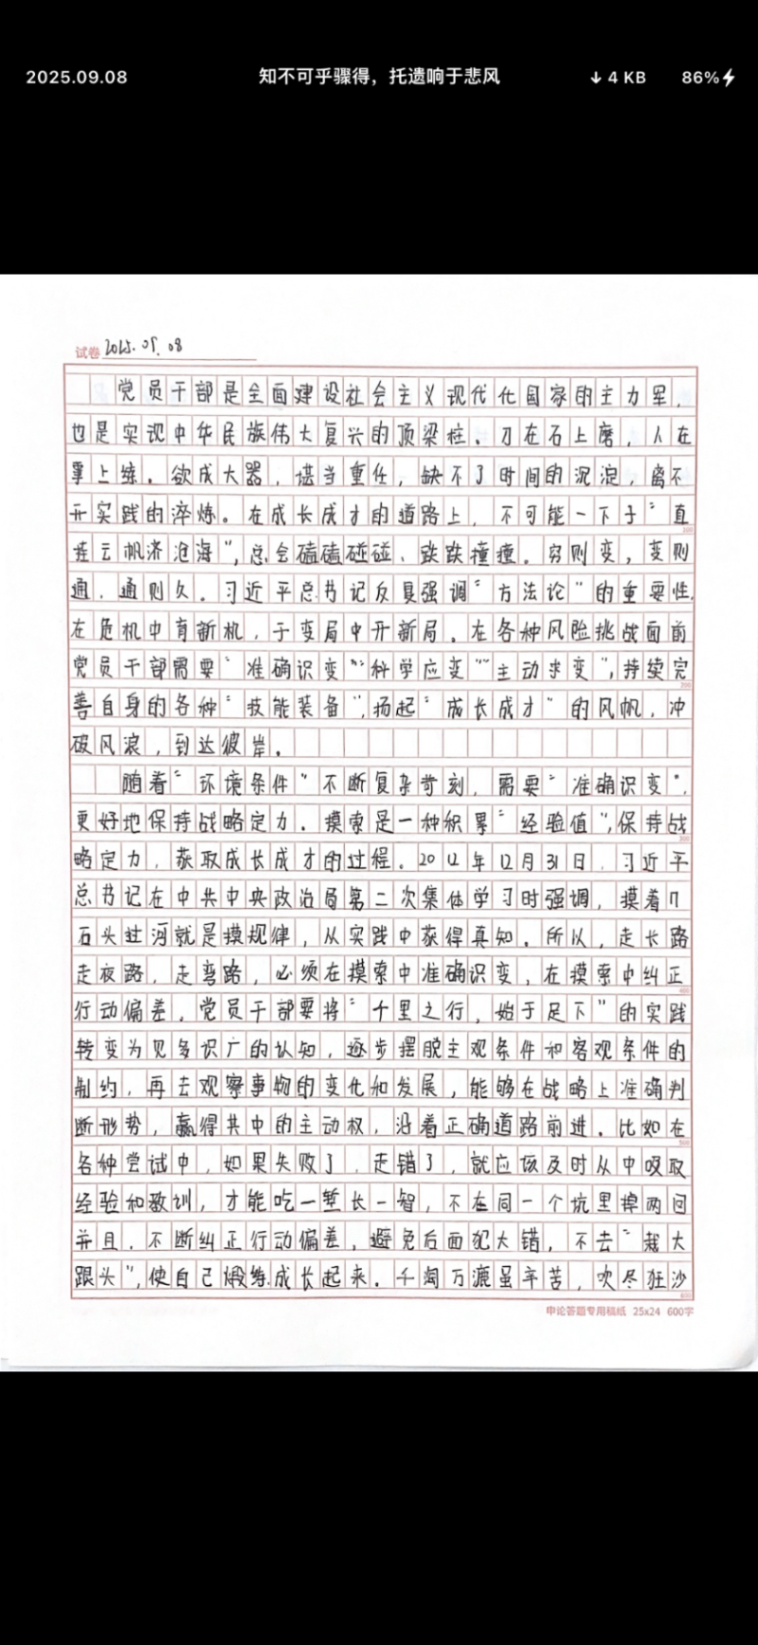 2025.09.08 知不可乎骤得，托遗响于悲风 ↓4 KB 86%
试卷 2025.09.08
党员干部是全面建设社会主义现代化国家的主力军，
也是实现中华民族伟大复兴的顶梁柱。刀在石上磨，人在
事上练。欲成大器，堪当重任，缺不了时间的沉淀，离不
开实践的淬炼。在成长成才的道路上，不可能一下子“直
挂云帆济沧海”，总会磕磕碰碰、跌跌撞撞。穷则变，变则
通，通则久。习近平总书记反复强调“方法论”的重要性，
在危机中育新机，于变局中开新局。在各种风险挑战面前
党员干部需要“准确识变”“科学应变”“主动求变”，持续完
善自身的各种“技能装备”，扬起“成长成才”的风帆，冲
破风浪，到达彼岸。
随着“环境条件”不断复杂苛刻，需要“准确识变”，
更好地保持战略定力。摸索是一种积累“经验值”，保持战
略定力，获取成长成才的过程。2012年12月31日，习近平
总书记在中共中央政治局第二次集体学习时强调，摸着
石头过河就是摸规律，从实践中获得真知。所以，走长路
走夜路，走弯路，必须在摸索中准确识变，在摸索中纠正
行动偏差，党员干部要将“千里之行，始于足下”的实践
转变为见多识广的认知，逐步摆脱主观条件和客观条件的
制约，再去观察事物的变化和发展，能够在战略上准确判
断形势，赢得其中的主动权，沿着正确道路前进。比如在
各种尝试中，如果失败了，走错了，就应该及时从中吸取
经验和教训，才能吃一堑长一智，不在同一个坑里掉两回
并且，不断纠正行动偏差，避免后面犯大错，不去“栽大
跟头”，使自己煅练成长起来。千淘万漉虽辛苦，吹尽狂沙
申论答题专用稿纸 25x24 600字